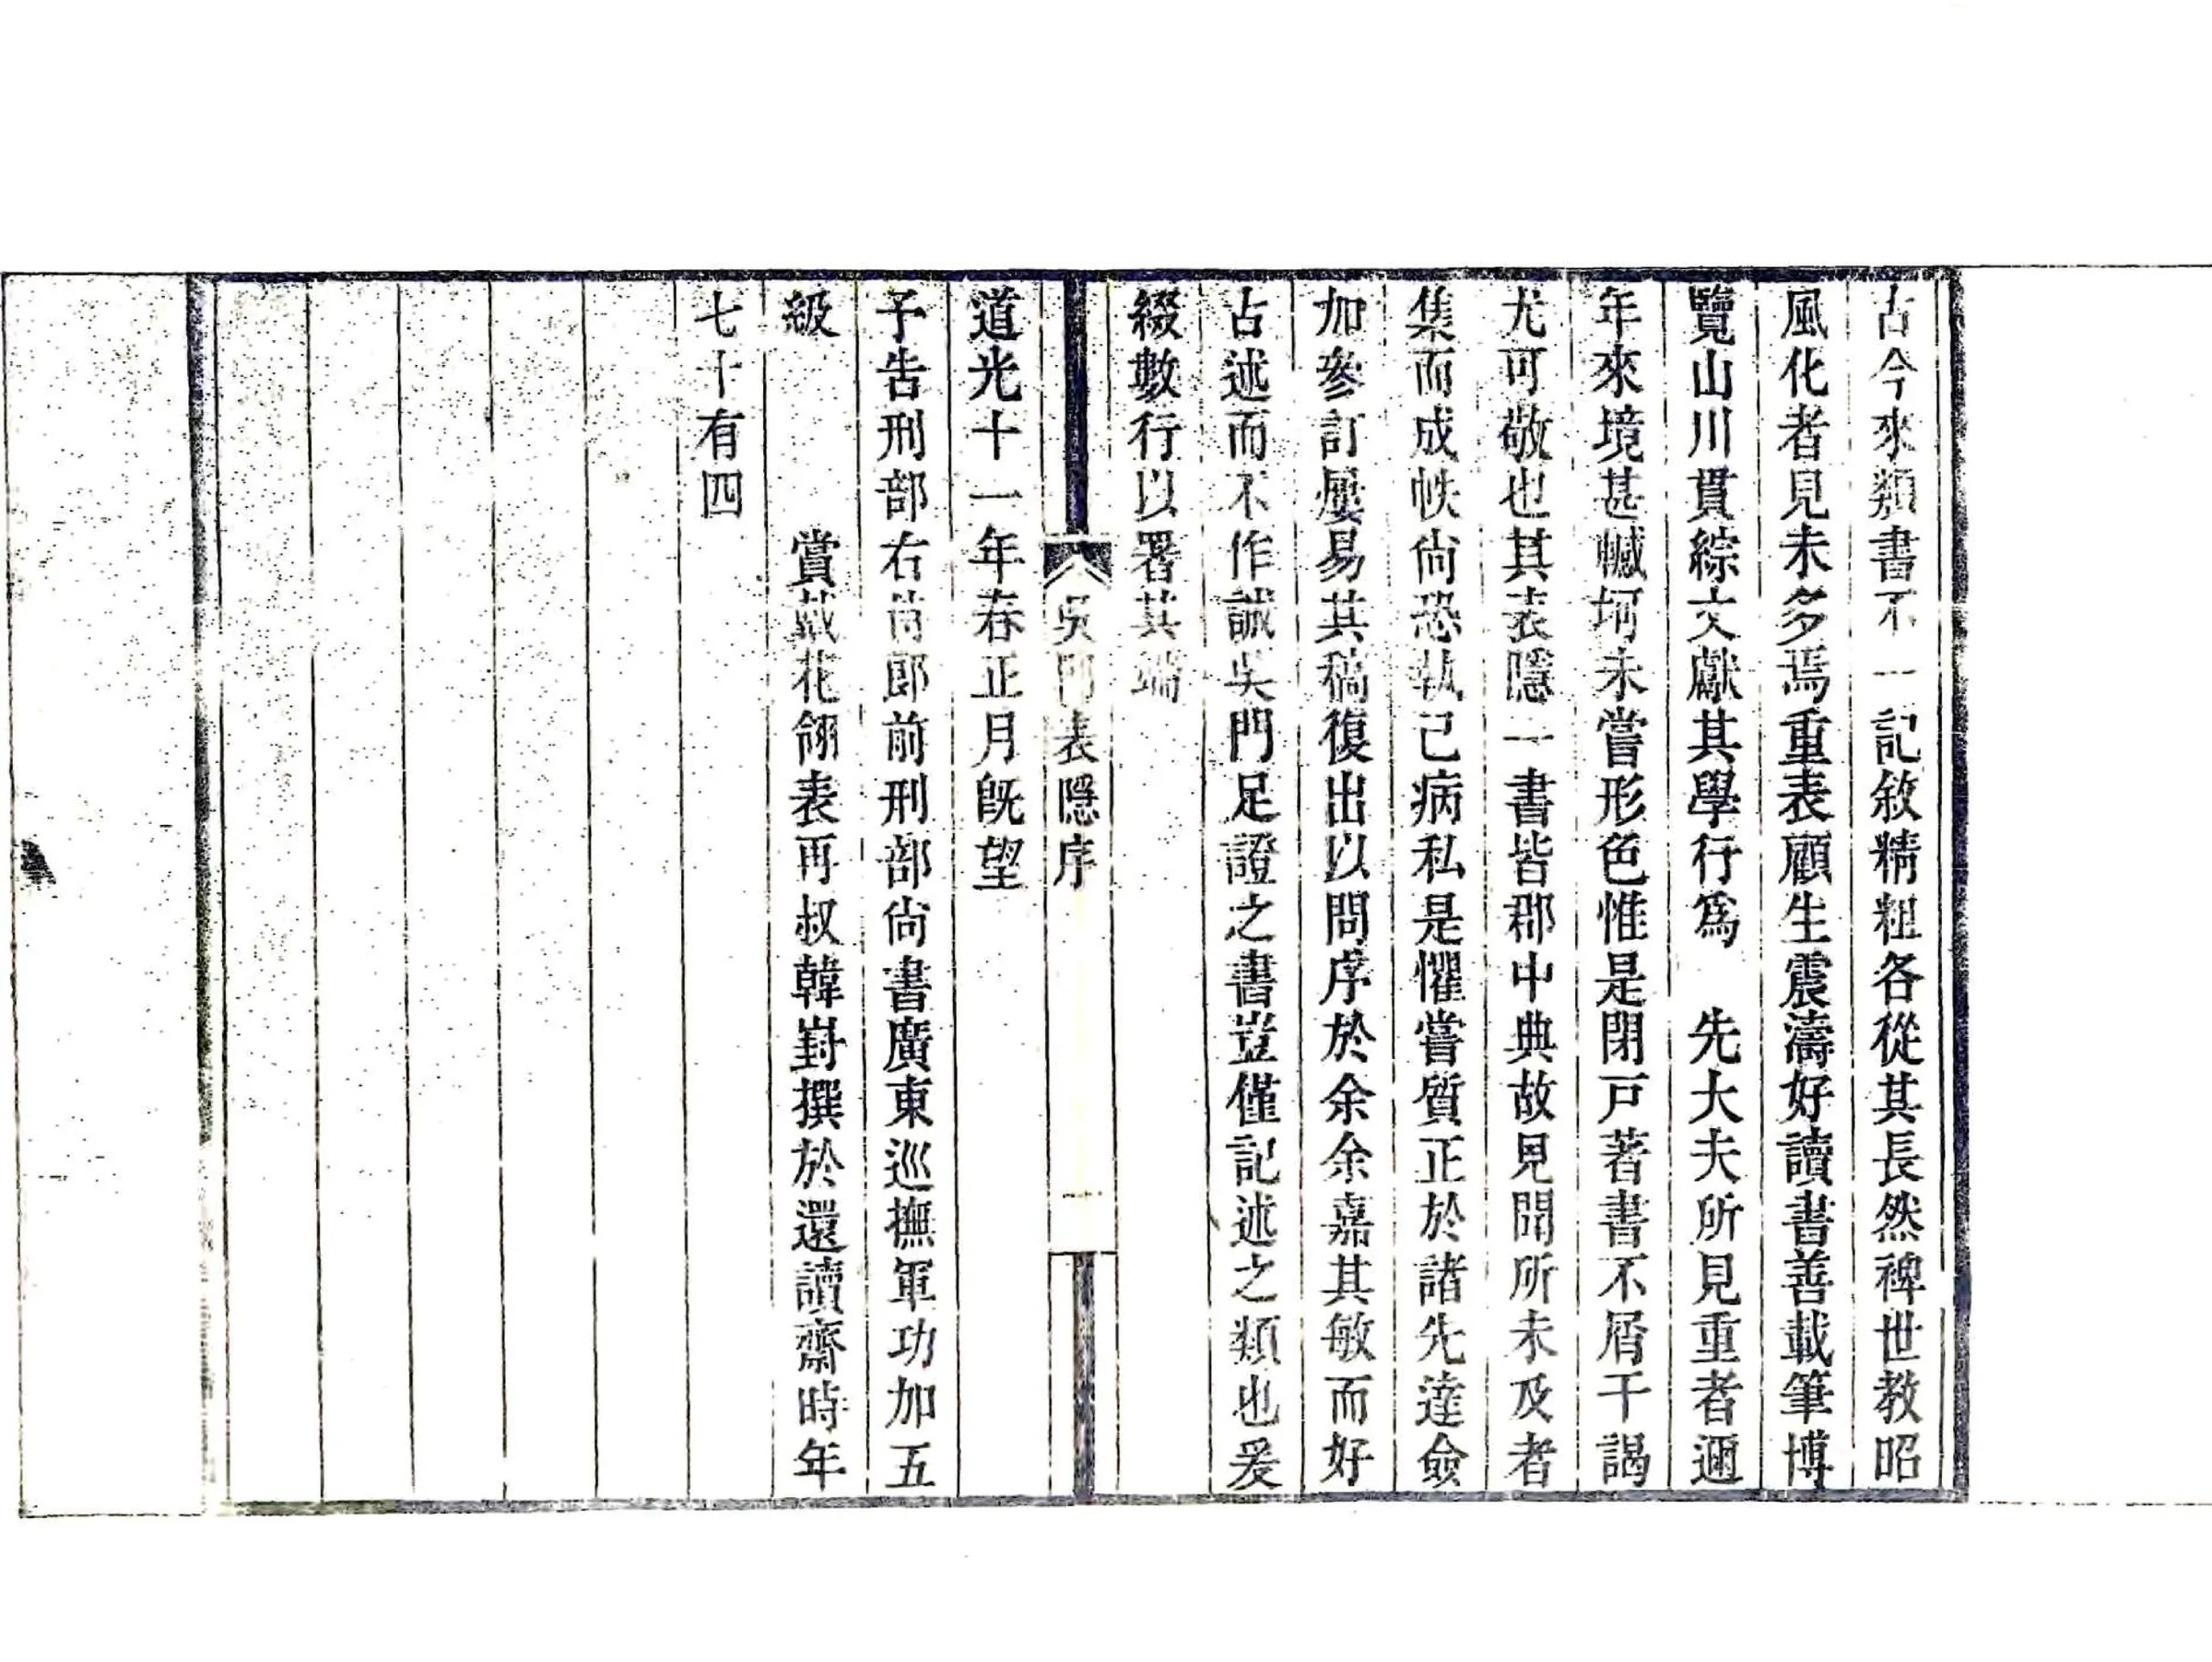 古今來類書不一記敘精粗各從其長然裨世教昭
風化者見未多焉重表顧生震濤好讀書善載筆博
覽山川貫綜文獻其學行爲　先大夫所見重者邇
年來境甚轗坷未嘗形色惟是閉戸著書不屑干謁
尤可敬也其表隱一書皆郡中典故見聞所未及者
集而成帙尙恐執己病私是懼嘗質正於諸先達僉
加參訂屢易其稿復出以問序於余余嘉其敏而好
古述而不作誠吳門足證之書豈僅記述之類也爰
綴數行以署其端
吳門表隱序
道光十一年春正月旣望
予告刑部右侍郎前刑部尙書廣東巡撫軍功加五
級　　　賞戴花翎表再叔韓崶撰於還讀齋時年
七十有四